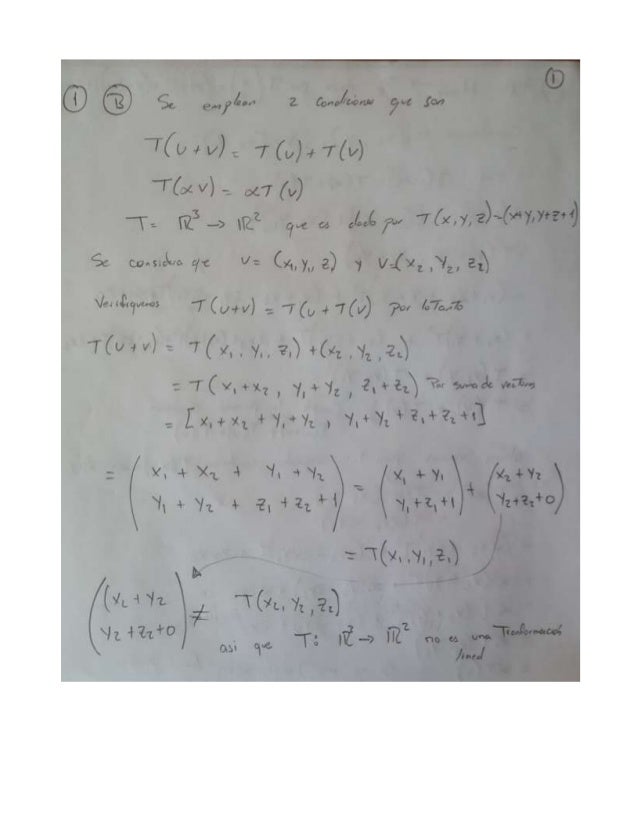 ①
① Ⓑ Se emplean 2 condiciones que son
T(u+v) = T(u) + T(v)
T(αv) = αT(v)
T= ℝ³ → ℝ² que es dado por T(x,y,z)=(x+y,y+z+1)
Se considera que u= (x₁,y₁,z) y v=(x₂,y₂,z₂)
Verifiquemos T(u+v) = T(u+T(v) por loTanto
T(u+v) = T(x₁,y₁,z₁)+(x₂,y₂,z₂)
= T(x₁+x₂, y₁+y₂, z₁+z₂) Por suma de vectores
= [x₁+x₂+y₁+y₂, y₁+y₂+z₁+z₂+1]
= (x₁ + x₂ + y₁+y₂ / y₁+y₂ + z₁+z₂+1) = (x₁+y₁ / y₁+z₁+1) + (x₂+y₂ / y₂+z₂+0)
= T(x₁,y₁,z₁)
((x₂+y₂ / y₂+z₂+0) ≠ T(x₂,y₂,z₂)
asi que T: ℝ³→ℝ² no es una Transformación
lineal